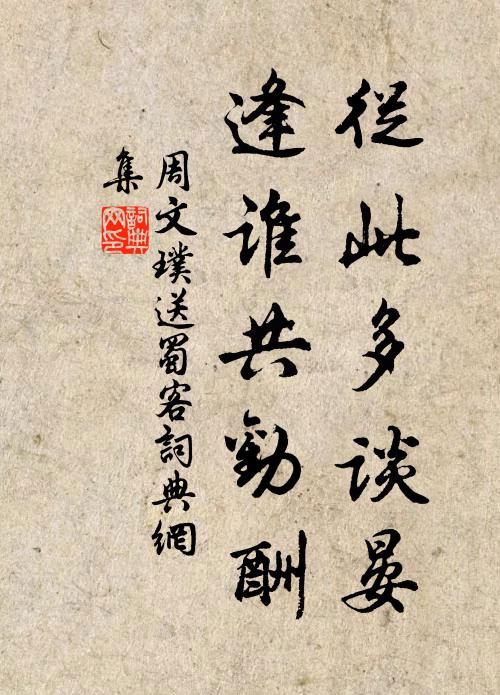 從此多談晏
逢誰共勸酬
周文璞送蜀客詞典網
集
詞典
网印